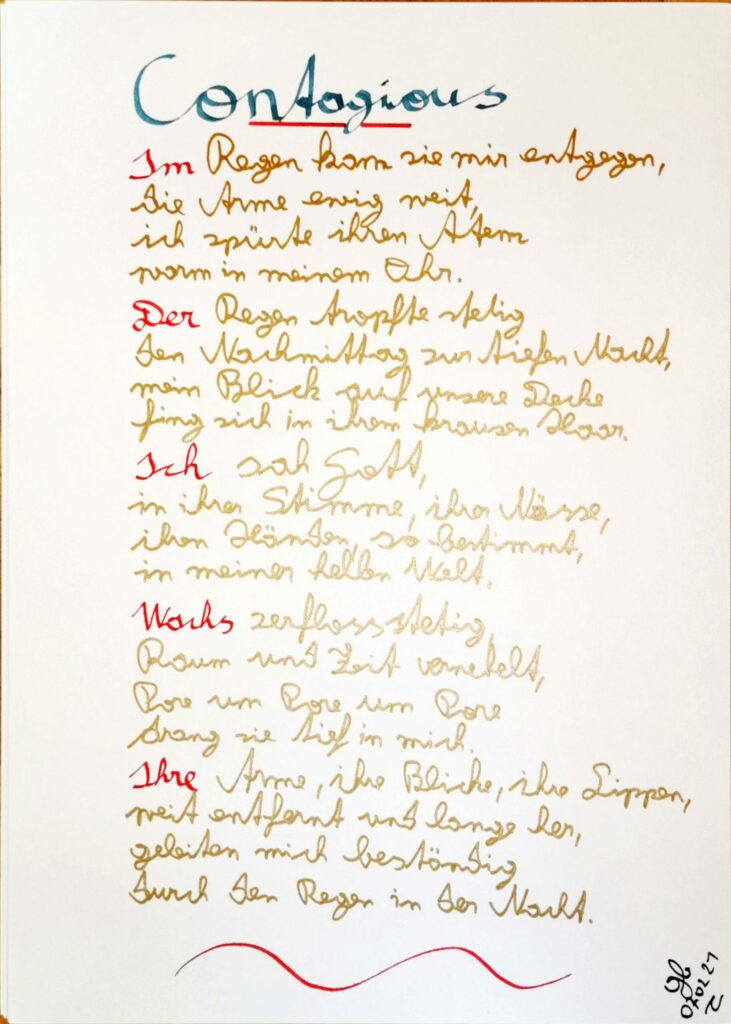 Contagious
Im Regen kam sie mir entgegen,
die Arme ewig weit,
ich spürte ihren Atem
warm in meinem Ohr.
Der Regen tropfte stetig
den Nachmittag zur tiefen Nacht,
mein Blick auf unsere Decke
fing sich in ihrem krausen Haar.
Ich sah Gott,
in ihrer Stimme, ihrer Nässe,
ihren Händen, so bestimmt,
in meiner hellen Welt.
Wachs zerfloss stetig,
Raum und Zeit vernebelt,
Pore um Pore um Pore
drang sie tief in mich.
Ihre Arme, ihre Blicke, ihre Lippen,
weit entfernt und lange her,
geleiten mich beständig
durch den Regen in der Nacht.